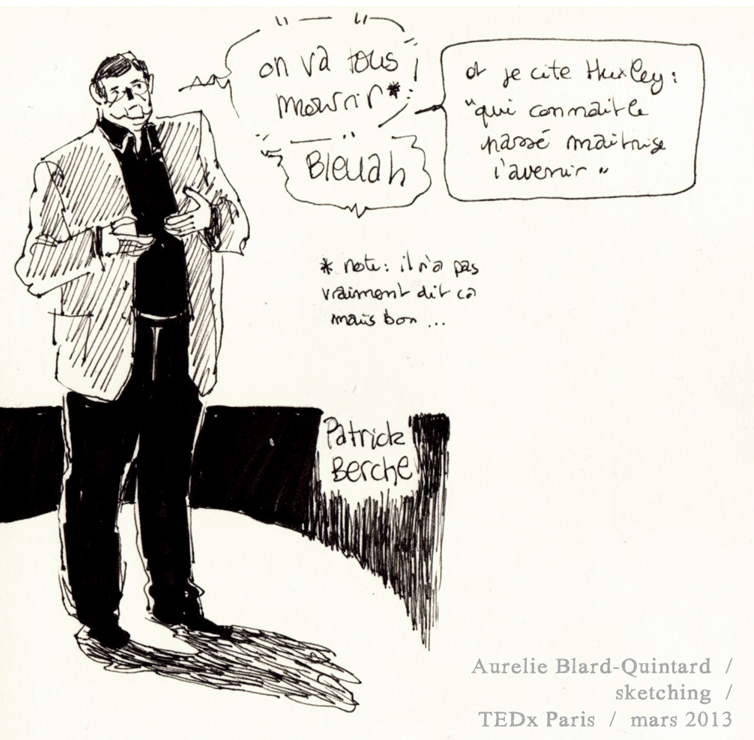 on va tous
mourir*
Bleuah
et je cite Huxley :
"qui connait le
passé maitrise
l'avenir "
* note : il n'a pas
vraiment dit ça
mais bon ...
Patrick
Berche
Aurelie Blard-Quintard /
sketching /
TEDx Paris / mars 2013